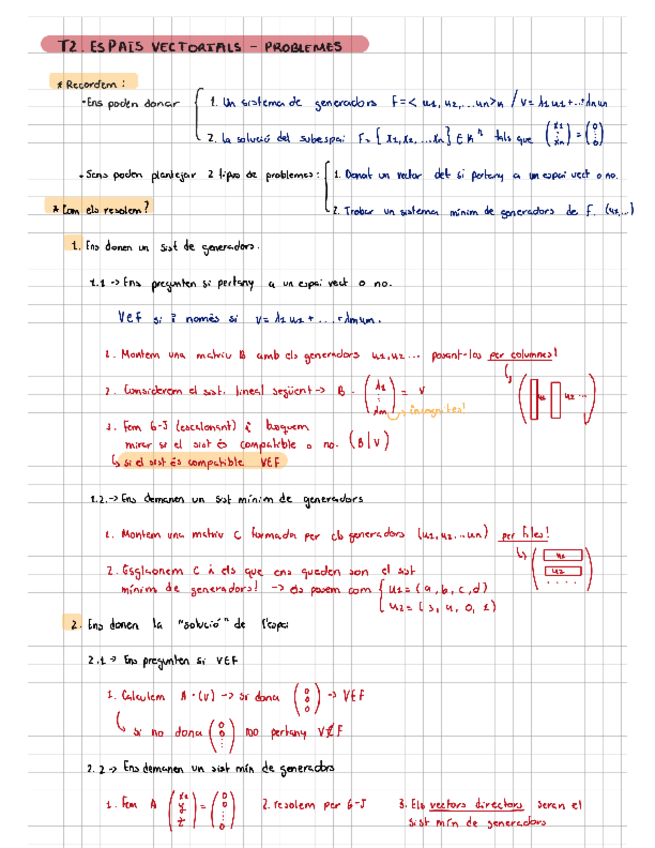 T2. ESPAIS VECTORIALS - PROBLEMES
* Recordem:
- Ens poden donar
1. Un sistema de generadors F=< u1, u2, ... un>κ / v= λ1u1+...+λnun
2. la solució del subespai F= { x1, x2, ... xn } ∈ Kⁿ tals que (x1 ⋮ xn) = (0 0 ⋮ 0)
- Sens poden plantejar 2 tipus de problemes:
1. Donat un vector det si pertany a un espai vect o no.
2. Trobar un sistema mínim de generadors de F. (u1,...)
* Com els resolem?
1. Ens donen un sist de generadors.
1.1 -> Ens pregunten si pertany a un espai vect o no.
V∈F si i només si v= λ1u1+...+λmum.
1. Montem una matriu B amb els generadors u1, u2 ... posant-los per columnes!
2. Considerem el sist. lineal següent -> B · (λ1 ⋮ λm) = v
incògnites!
u1 u2 ...
3. Fem G-J (escalonant) i busquem
mirar si el sist és compatible o no. (B | V)
si el sist és compatible V∈F
1.2. -> Ens demanen un sist mínim de generadors
1. Montem una matriu C formada per els generadors (u1, u2 ... un) per files!
u1
u2
....
2. Esglaonem C i els que ens queden son el sist
mínim de generadors! -> els posem com { u1 = (a, b, c, d)
u2 = (3, 4, 0, 1)
2. Ens donen la "solució" de l'espai
2.1 -> Ens pregunten si V∈F
1. Calculem A · (v) -> si dona (0 0 0) -> V∈F
si no dona (0 0 ⋮) no pertany V∉F
2.2 -> Ens demanen un sist mín de generadors
1. Fem A (x y z) = (0 0 ⋮ 0) 2. resolem per G-J 3. Els vectors directors seran el
sist mín de generadors